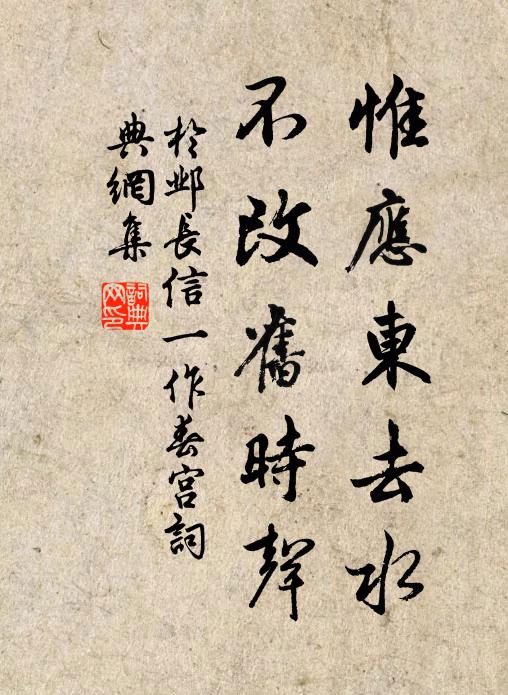 惟應東去水
不改舊時聲
於鄴長信一作春宮詞
典網集
詞典網印